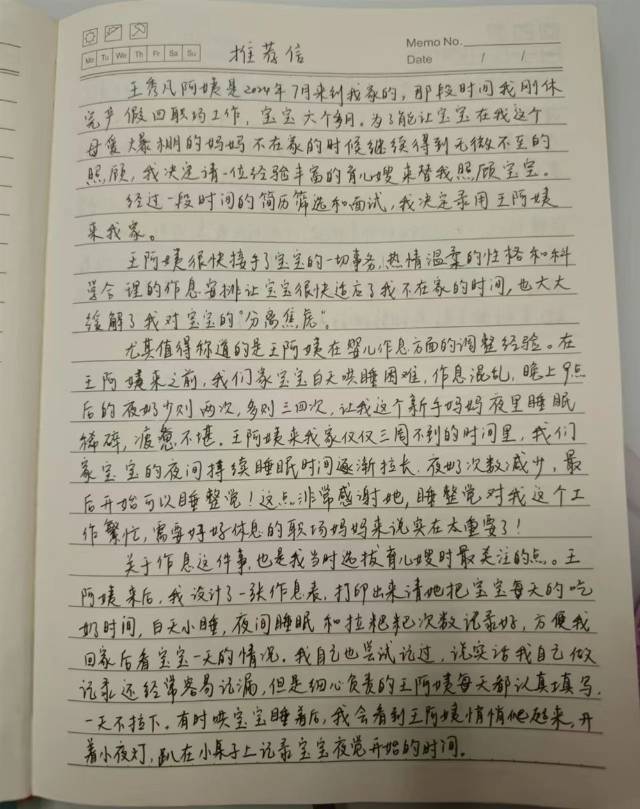 Mo Tu We Th Fr Sa Su
推荐信
Memo No.
Date / /
王秀凡阿姨是2024年7月来到我家的，那段时间我刚休
完产假回职场工作，宝宝六个多月。为了能让宝宝在我这个
母爱大爆棚的妈妈不在家的时候继续得到无微不至的
照顾，我决定请一位经验丰富的育儿嫂来替我照顾宝宝。
经过一段时间的简历筛选和面试，我决定录用王阿姨
来我家。
王阿姨很快接手了宝宝的一切事务，热情温柔的性格和科
学合理的作息安排让宝宝很快适应了我不在家的时间，也大大
缓解了我对宝宝的“分离焦虑”。
尤其值得称道的是王阿姨在婴儿作息方面的调整经验。在
王阿姨来之前，我们家宝宝白天哄睡困难，作息混乱，晚上9点
后的夜奶少则两次，多则三四次，让我这个新手妈妈夜里睡眠
稀碎，疲惫不堪。王阿姨来我家仅仅三周不到的时间里，我们
家宝宝的夜间持续睡眠时间逐渐拉长，夜奶次数减少，最
后开始可以睡整觉！这点非常感谢她，睡整觉对我这个工
作繁忙，需要好好休息的职场妈妈来说实在太重要了！
关于作息这件事，也是我当时选拔育儿嫂时最关注的点。王
阿姨来后，我设计了一张作息表，打印出来请她把宝宝每天的吃
奶时间，白天小睡，夜间睡眠和拉粑粑次数记录好，方便我
回家后看宝宝一天的情况。我自己也尝试记过，说实话我自己做
记录还经常容易记漏，但是细心负责的王阿姨每天都认真填写，
一天不拉下。有时哄宝宝睡着后，我会看到王阿姨悄悄爬起来，开
着小夜灯，趴在小桌子上记录宝宝夜觉开始的时间。